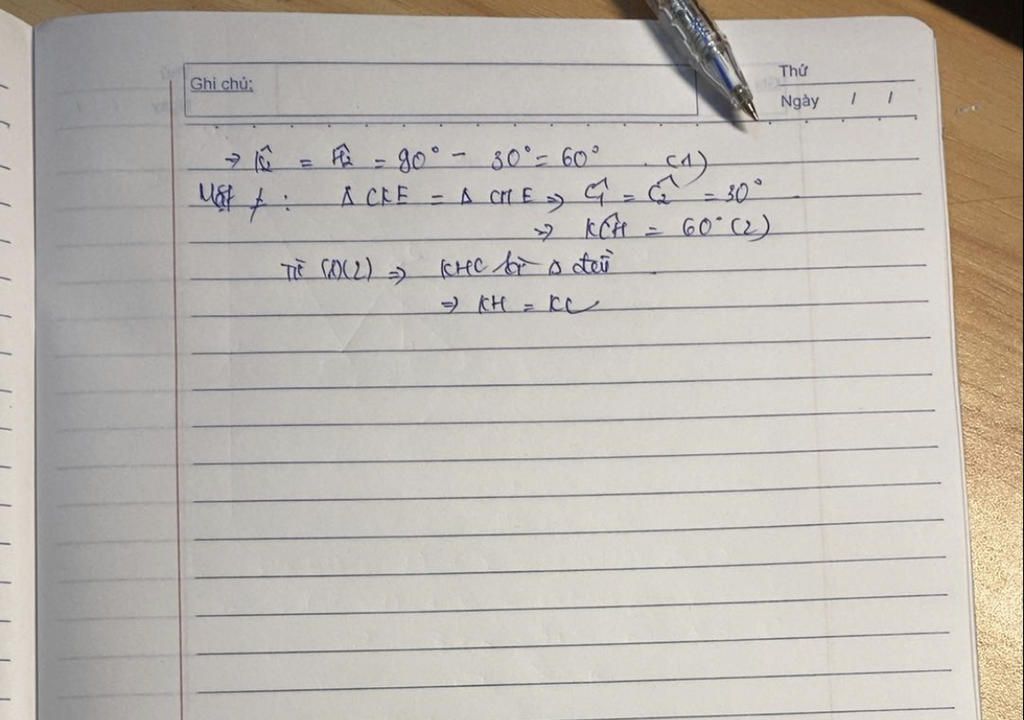 Ghi chú:
Thứ
Ngày / /
→ K̂₂ = Ĥ₂ = 90° - 30° = 60° (1)
Mặt ≠ : Δ CKE = Δ CHE ⇒ Ĉ₁ = Ĉ₂ = 30°
⇒ KĈH = 60° (2)
Từ (1)(2) ⇒ KHC là Δ đều
⇒ KH = KC